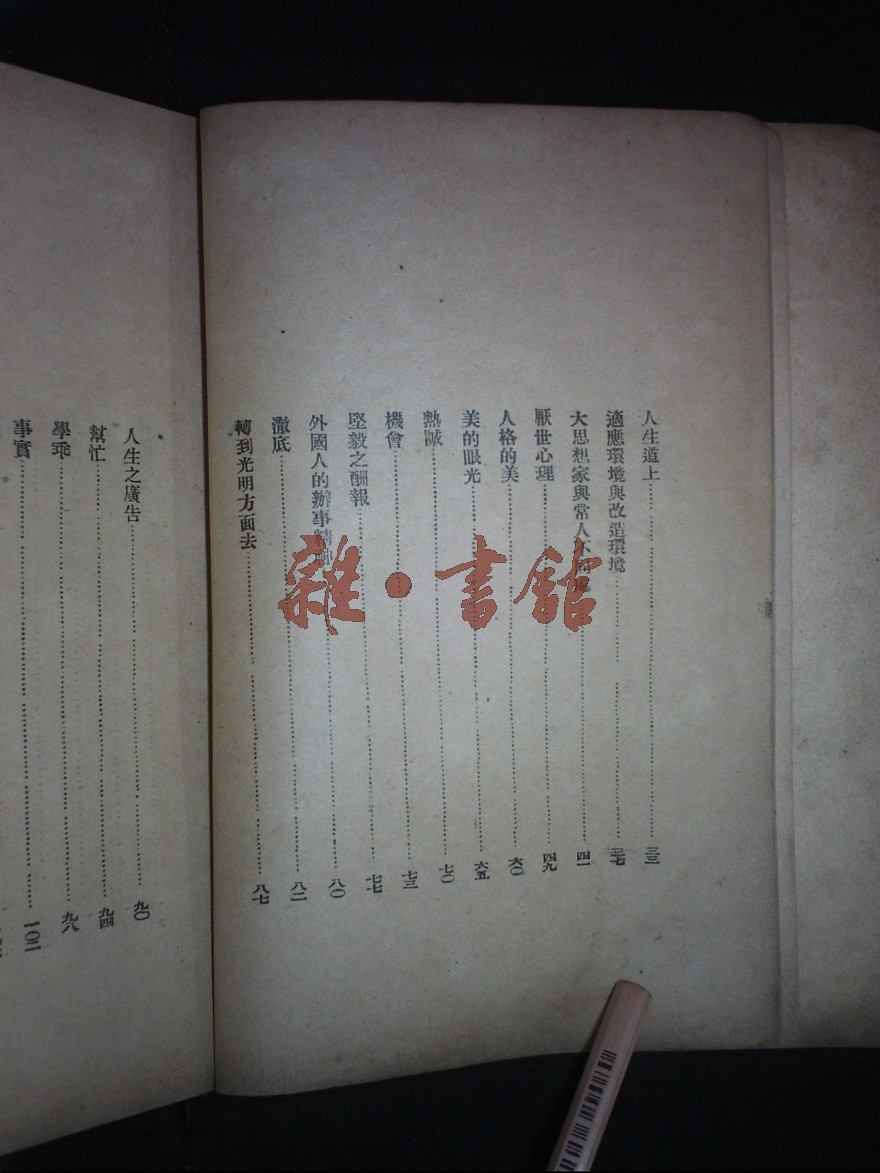 人生道上……三三
適應環境與改造環境……三七
大思想家與常人不同……四一
厭世心理……四九
人格的美……六〇
美的眼光……六五
熱誠……七〇
機會……七三
堅毅之酬報……七七
外國人的辦事精神……八〇
澈底……八二
轉到光明方面去……八七
人生之廣告……九〇
幫忙……九四
學乖……九八
事實……一〇二
雜·書館